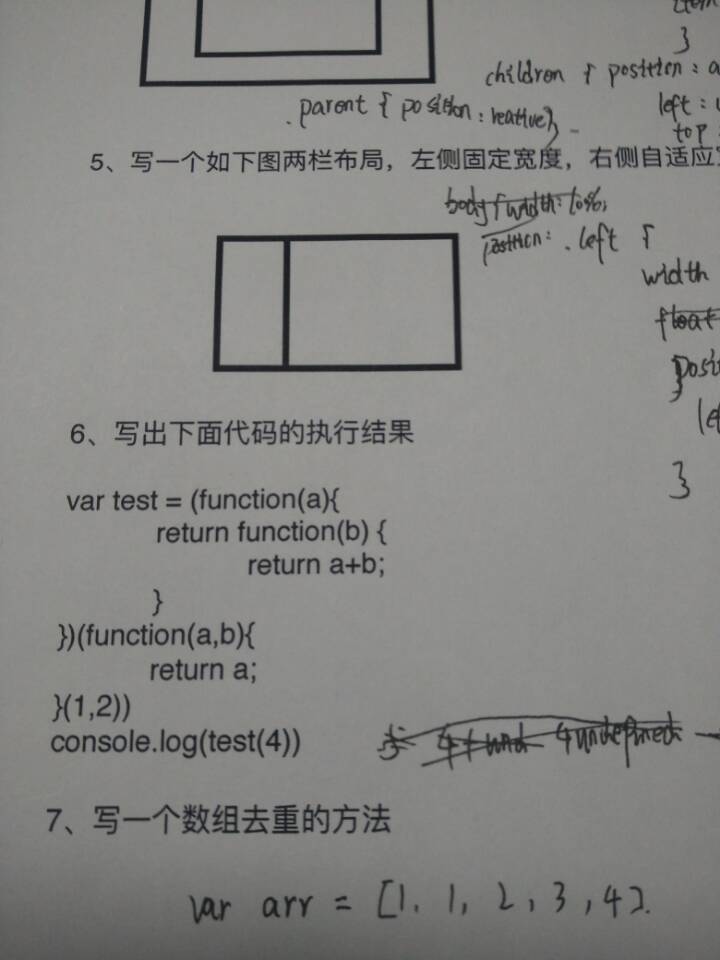 }
children { position : a
.parent { position : reative}
left :
top :
5、写一个如下图两栏布局，左侧固定宽度，右侧自适应
body { width: 100%;
position: .left {
width
float
posi
}
le
}
6、写出下面代码的执行结果
var test = (function(a){
return function(b) {
return a+b;
}
})(function(a,b){
return a;
}(1,2))
console.log(test(4))
5 4 + und 4undefined
7、写一个数组去重的方法
var arr = [1. 1, 2, 3, 4].